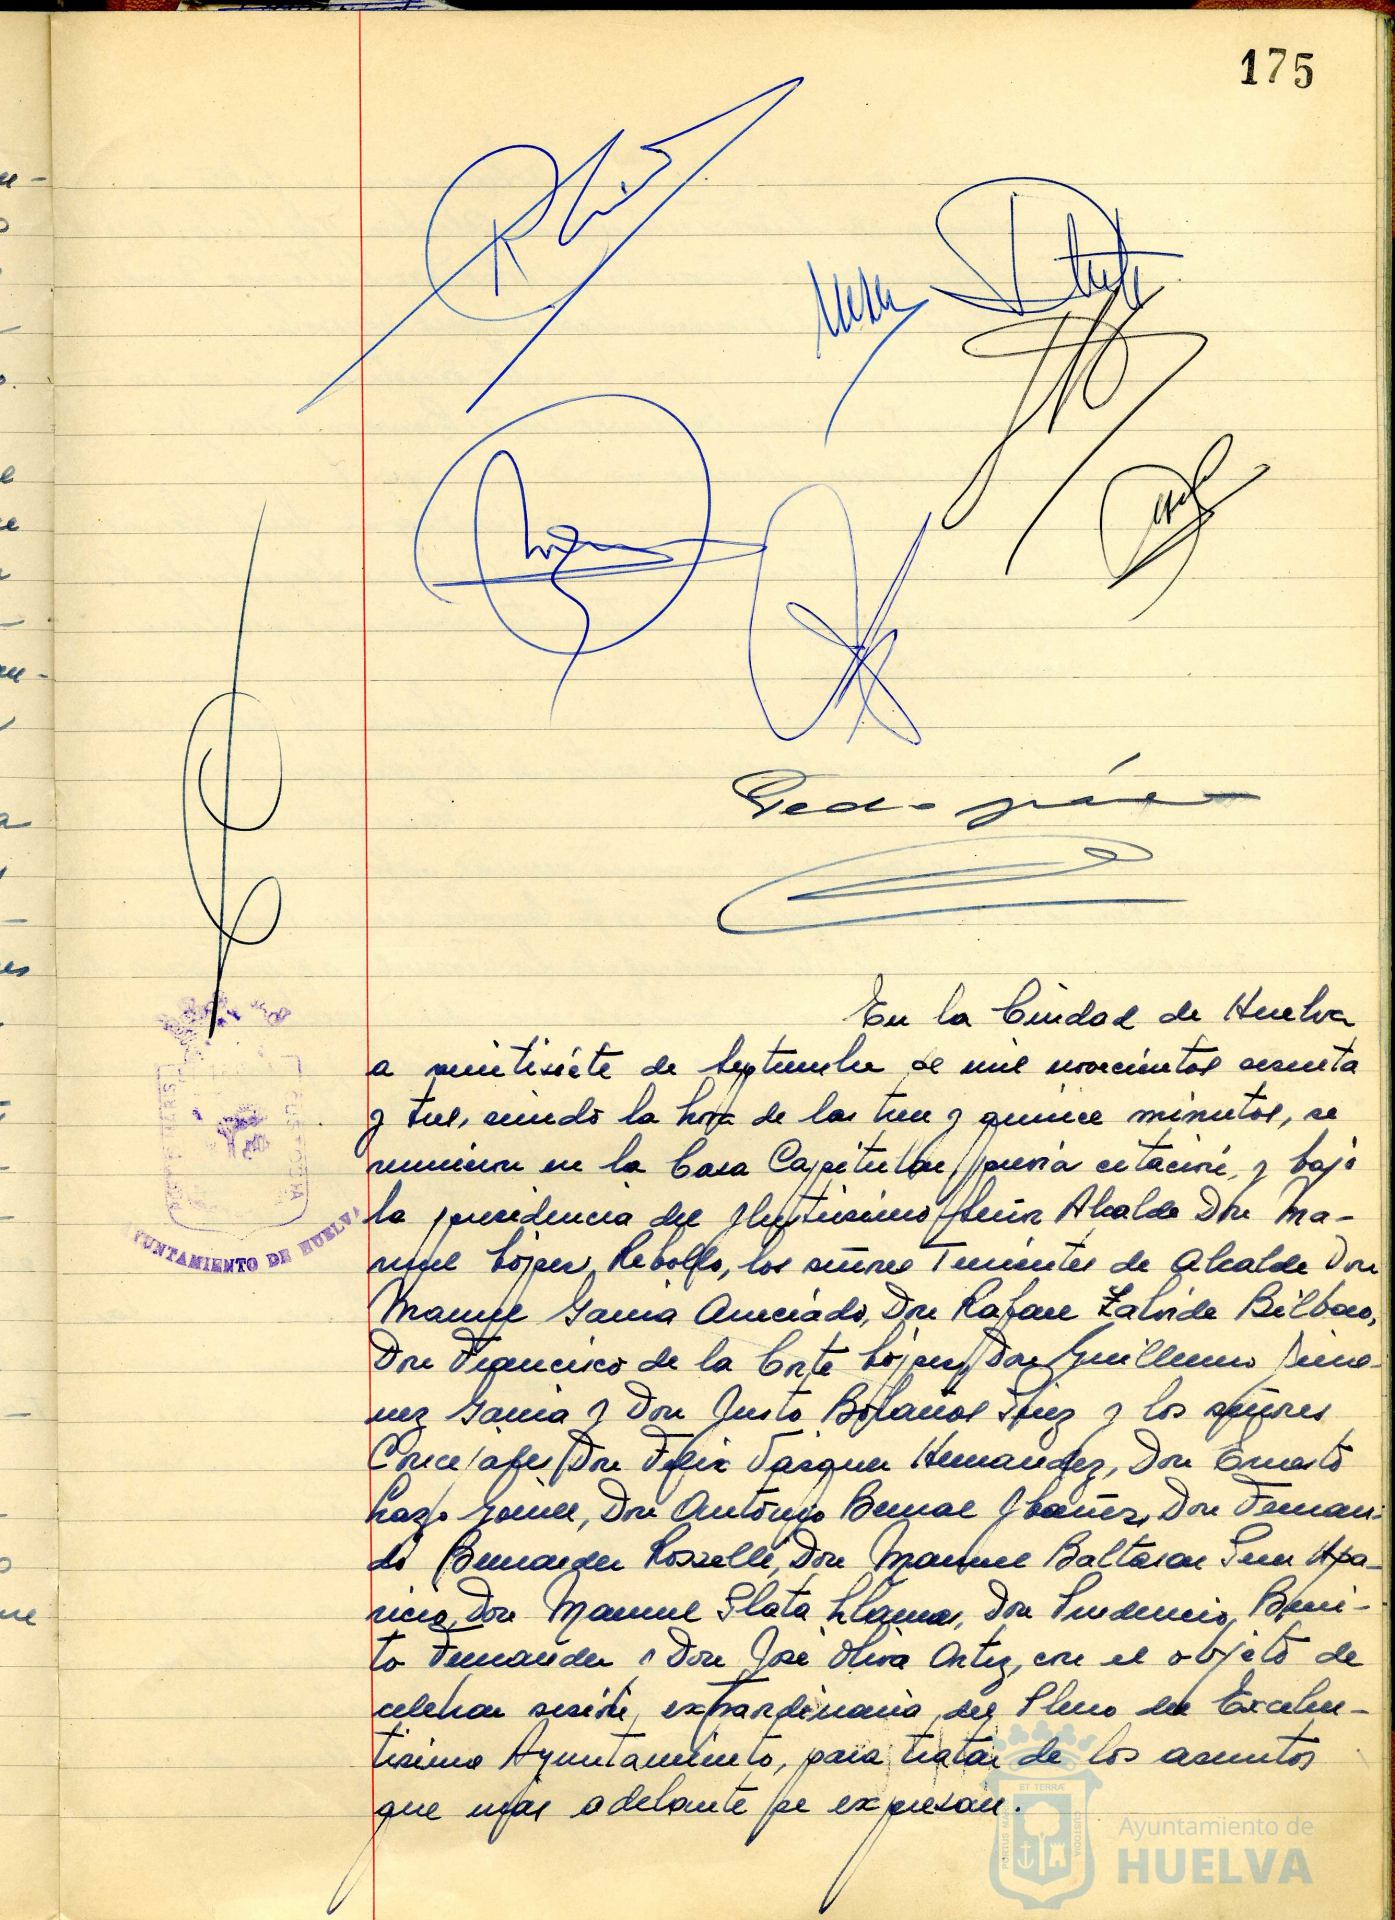 175
En la Ciudad de Huelva
a veintisiéte de Septiembre de mil novecientos sesenta
y tres, siendo la hora de las trece y quince minutos, se
reunieron en la Casa Capitular, previa citación, y bajo
la presidencia del Ilustrisimo Señor Alcalde Don Ma-
nuel López Rebollo, los señores Tenientes de Alcalde Don
Manuel Garcia Aneciado, Don Rafael Zalvide Bilbao,
Don Francisco de la Corte López, Don Guillermo Jimé-
nez Garcia y Don Justo Bolaños Sáez y los señores
Concejales Don Felix Vazquez Hernandez, Don Ernesto
Lazo Gómez, Don António Bernal Ibañez, Don Fernan-
do Bernardez Rosselló, Don Manuel Baltasar Seras Apa-
ricio, Don Manuel Plata Llamas, Don Prudencio Beni-
to Fernandez y Don José Oliva Ortiz, con el objeto de
celebrar sesión extraordinaria del Pleno del Excelen-
tisimo Ayuntamiento, para tratar de los asuntos
que más adelante se expresan.
AYUNTAMIENTO DE HUELVA
Ayuntamiento de
HUELVA